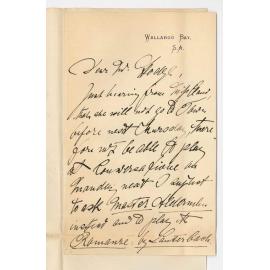 WALLAROO BAY,
S.A.
Dear Mr.
Just hearing from
that she will not go to Town
before next Thursday, there-
fore not be able to play
at Conversazione on
Monday next I
to ask Master
instead and to play the
Romanze by